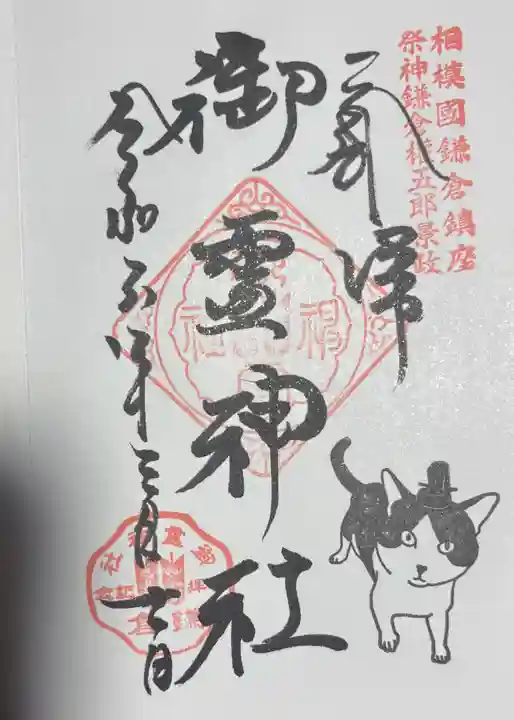 相模國鎌倉鎮座
祭神鎌倉権五郎景政
奉拝
御霊神社
令和五年三月十一日